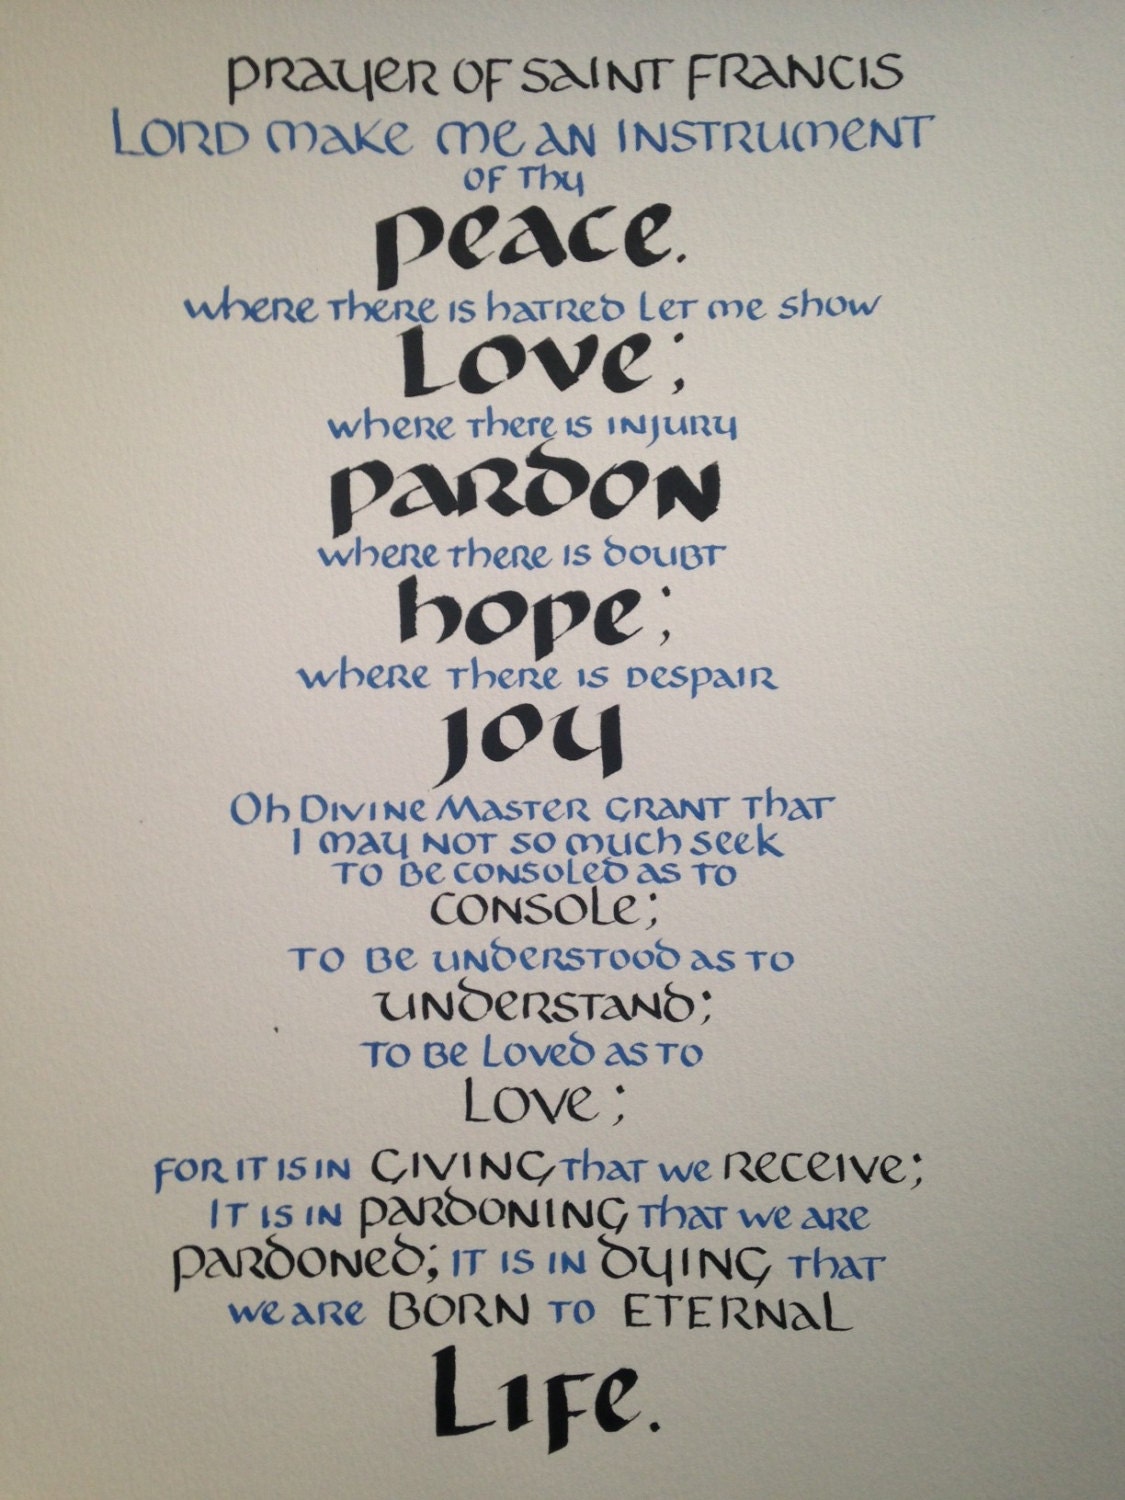 Prayer of Saint Francis
Lord make me an instrument
of thy
peace.
where there is hatred let me show
Love;
where there is injury
pardon
where there is doubt
hope;
where there is despair
joy
Oh Divine Master grant that
I may not so much seek
to be consoled as to
console;
to be understood as to
understand;
to be loved as to
Love;
for it is in GIVING that we RECEIVE;
It is in PARDONING that we are
PARDONED; it is in DYING that
we are BORN to ETERNAL
Life.